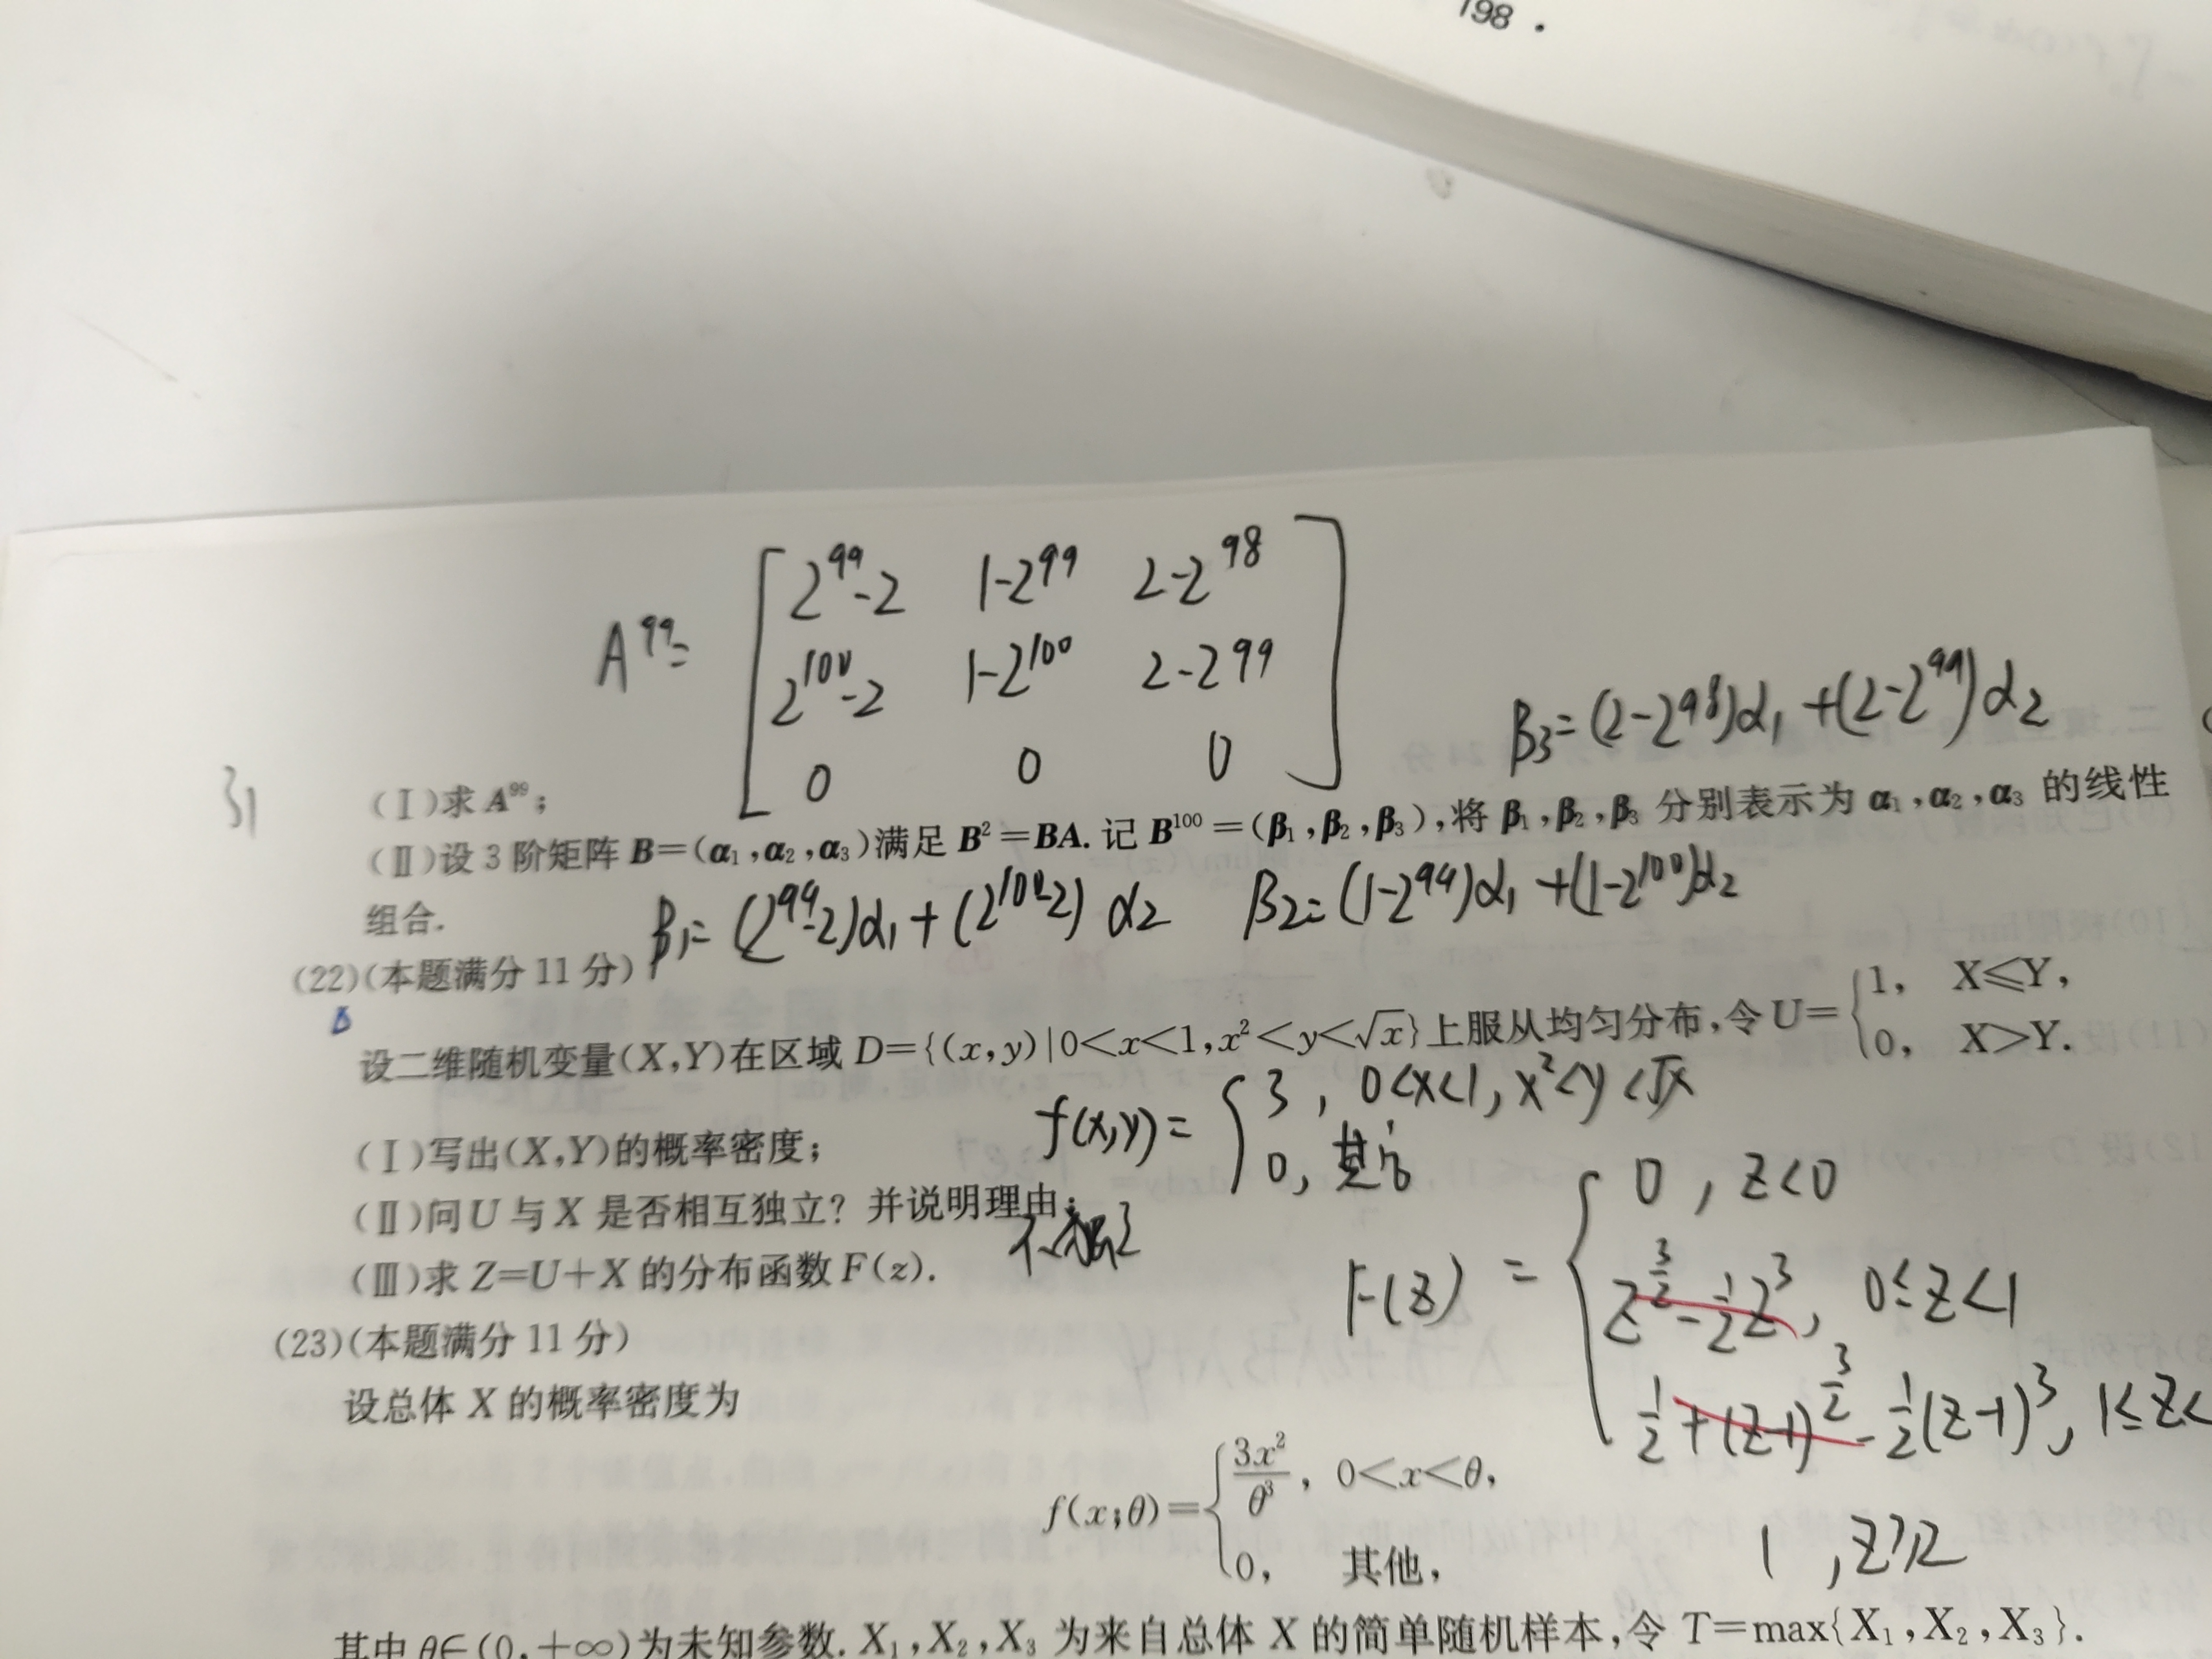 198 .
A^99 = [ 2^99-2 1-2^99 2-2^98
2^100-2 1-2^100 2-2^99
0 0 0 ]
β3=(2-2^98)α1+(2-2^99)α2
31
(Ⅰ)求 A^99;
(Ⅱ)设 3 阶矩阵 B=(α1,α2,α3)满足 B²=BA. 记 B^100=(β1,β2,β3),将 β1,β2,β3 分别表示为 α1,α2,α3 的线性
组合.
β1=(2^99-2)α1+(2^100-2)α2 β2=(1-2^99)α1+(1-2^100)α2
(22)(本题满分 11 分)
设二维随机变量(X,Y)在区域 D={(x,y)|0<x<1,x²<y<√x}上服从均匀分布,令U={1, X≤Y,
0, X>Y.
f(x,y)={3, 0<x<1, x²<y<√x
0, 其它
(Ⅰ)写出(X,Y)的概率密度;
(Ⅱ)问U与X是否相互独立?并说明理由;
不独立
(Ⅲ)求 Z=U+X 的分布函数F(z).
F(z) = {0, z<0
z^(3/2)-1/2z³, 0≤z<1
1/2+(z-1)^(3/2)-1/2(z-1)³, 1≤z<
1, z≥2
(23)(本题满分 11 分)
设总体 X 的概率密度为
f(x;θ)={3x²/θ³, 0<x<θ,
0, 其他,
其中 θ∈(0,+∞)为未知参数. X1,X2,X3 为来自总体 X 的简单随机样本,令 T=max{X1,X2,X3}.